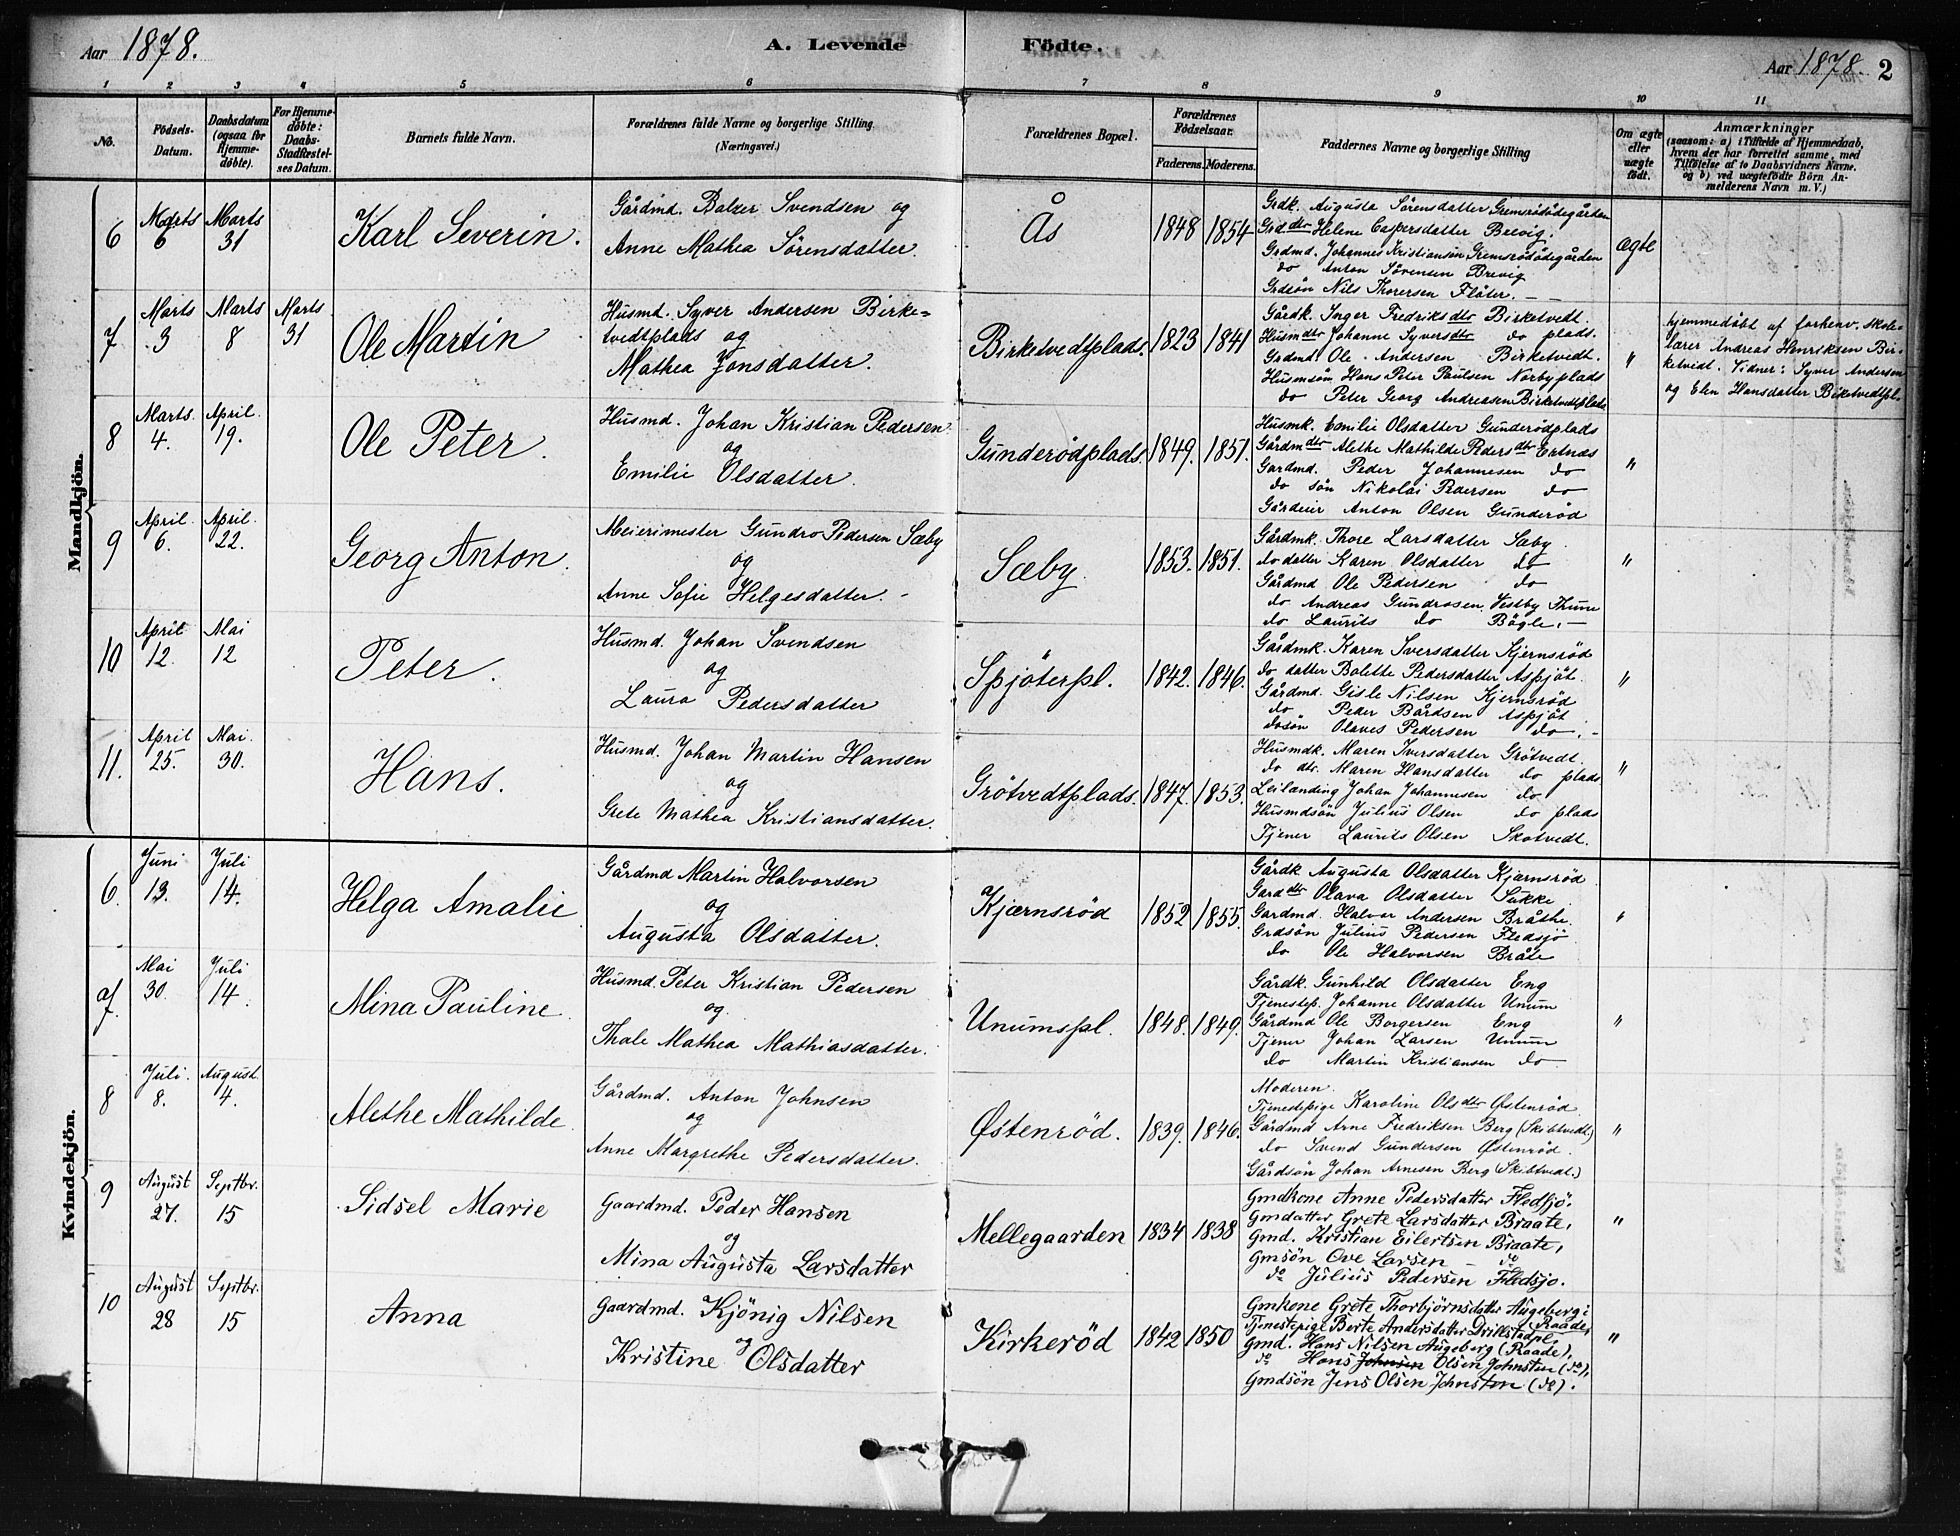 Aar 1878.
A. Levende Födte.
Aar 1878. 2
1 2 3 4 5 6 7 8 9 10 11
No.
Födsels-Datum.
Daabsdatum (ogsaa for Hjemme-döbte).
For Hjemme-döbte: Daabs-Stadfæstel-ses Datum.
Barnets fulde Navn.
Forældrenes fulde Navne og borgerlige Stilling (Næringsvei.)
Forældrenes Bopæl.
Forældrenes Födselsaar.
Faderens. Moderens.
Faddernes Navne og borgerlige Stilling
Om ægte eller uægte födt.
Anmærkninger
(saasom: a) i Tilfælde af Hjemmedaab,
hvem der har forrettet samme, med
Tilföielse af to Daabsvidners Navne.
og b) ved uægtefödte Börn An-
melderens Navn m. V.)
Mandkjön.
6 Marts 6 Marts 31 Karl Severin.
Gårdmd. Balzer Svendsen og
Anne Mathea Sörensdatter.
Ås 1848 1854
Grdk. Augusta Sörensdatter Gremsrödödegården
Grd.dtr Helene Caspersdatter Brevig.
Grdmd. Johannes Kristiansen Gremsrödödegården
do Anton Sörensen Brevig
Grdsön Nils Thorersen Flöter.
ægte
7 Marts 3 Marts 8 Marts 31 Ole Martin
Husmd. Syver Andersen Birke=
tvedtplads og
Mathea Jonsdatter.
Birketvedtplads. 1823 1841
Gårdk. Inger Fredriksdtr Birketvedt.
Husmdtr Johanne Syversdtr do plads.
Grdmd Ole Andersen Birketvedt.
Husmsön Hans Peter Paulsen Norbyplads
do Peter Georg Andreasen Birketvedtplads
"
hjemmedöbt af forhenv. skole-
lærer Andreas Henriksen Bir-
ketvedt. Vidner: Syver Andersen
og Elen Hansdatter Birketvedtpl.
8 Marts. 4. April. 19. Ole Peter.
Husmd. Johan Kristian Pedersen
og
Emilie Olsdatter.
Gunderödplads. 1849. 1851.
Husmk. Emilie Olsdatter Gunderödplads
Gårdmdtr Alethe Mathilde Pedersdtr Eatnæs
Gardmd. Peder Johannesen do
do sön Nikolai Pedersen do
Gårdeier Anton Olsen Gunderöd
"
9 April. 6. April. 22. Georg Anton.
Meierimester Gundro Pedersen Sæby
og
Anne Sofie Helgesdatter.
Sæby. 1853. 1851.
Gårdmk. Thore Larsdatter Sæby.
do datter Karen Olsdatter do
Gårdmd Ole Pedersen do
do Andreas Gundrosen, Vestby Thune
do Laurits do Bögle.
"
10 April 12. Mai 12 Peter.
Husmd. Johan Svendsen
og
Laura Pedersdatter
Spjöterpl. 1842. 1846.
Gårdmk. Karen Iversdatter Kjernsröd
do datter Bolette Pedersdatter Aspjöt.
Gårdmd. Gisle Nilsen Kjernsröd
do Peder Bårdsen Aspjöt
do sön Olaves Pedersen do.
"
11. April 25. Mai. 30. Hans.
Husmd. Johan Martin Hansen
og
Grete Mathea Kristiansdatter.
Grötvedtplads. 1847. 1853.
Husmdk. Maren Iversdatter Grötvedt.
do dtr. Maren Hansdatter do plads
Leilænding Johan Johannesen do
Husmdsön Julius Olsen do plads
Tjener Laurits Olsen Skotvedt.
"
Kvindekjön.
6. Juni 13. Juli 14. Helga Amalie
Gårdmd Martin Halvorsen
og
Augusta Olsdatter.
Kjærnsröd 1852 1855.
Gårdk Augusta Olsdatter Kjærnsröd
Garddtr Olava Olsdatter Sukke.
Gardmd. Halvor Andersen Bråthe.
Grdsön Julius Pedersen Fledsjö
do Ole Halvorsen Bråte
"
7. Mai 30. Juli 14 Mina Pauline
Husmd. Peter Kristian Pedersen
og
Thale Mathea Mathiasdatter.
Unumspl. 1848. 1849.
Gårdk. Gunhild Olsdatter Eng
Tjenestep. Johanne Olsdatter Unum
Gårdmd Ole Borgersen Eng
Tjener Johan Larsen Unum
do Martin Kristiansen do
"
8 Juli. 8. August. 4. Alethe Mathilde.
Gårdmd. Anton Johnsen
og
Anne Margrethe Pedersdatter.
Østenröd. 1839. 1846.
Moderen.
Tjenestepige Karoline Olsdtr Østenröd.
Gårdmd Arne Fredriksen Berg (Skibtvedt)
do Svend Gundersen Østenröd.
Gårdsön Johan Arnesen Berg (Skibtvedt.)
"
9 August 27. Septbr. 15 Sidsel Marie
Gaardmd. Peder Hansen
og
Mina Augusta Larsdatter
Mellegaarden 1834 1838
Gmdkone Anne Pedersdatter Fledsjö.
Gmdatter Grete Larsdatter Braate,
Gmd. Kristian Eilertsen Braate,
Gmsön Ove Larsen do
do Julius Pedersen Fledsjo.
"
10 August 28 Septbr. 15 Anna
Gaardmd. Kjönig Nilsen
og
Kristine Olsdatter
Kirkeröd 1842 1850
Gmkone Grete Thorbjörnsdatter Augeberg i
(Raade,
Tjenestepige Berte Andersdatter Drillstadpl.
Gmd. Hans Nilsen Augeberg (Raade),
do Hans Johnsen Olsen Johnsten (do),
Gmdsön Jens Olsen Johnsten (do).
"